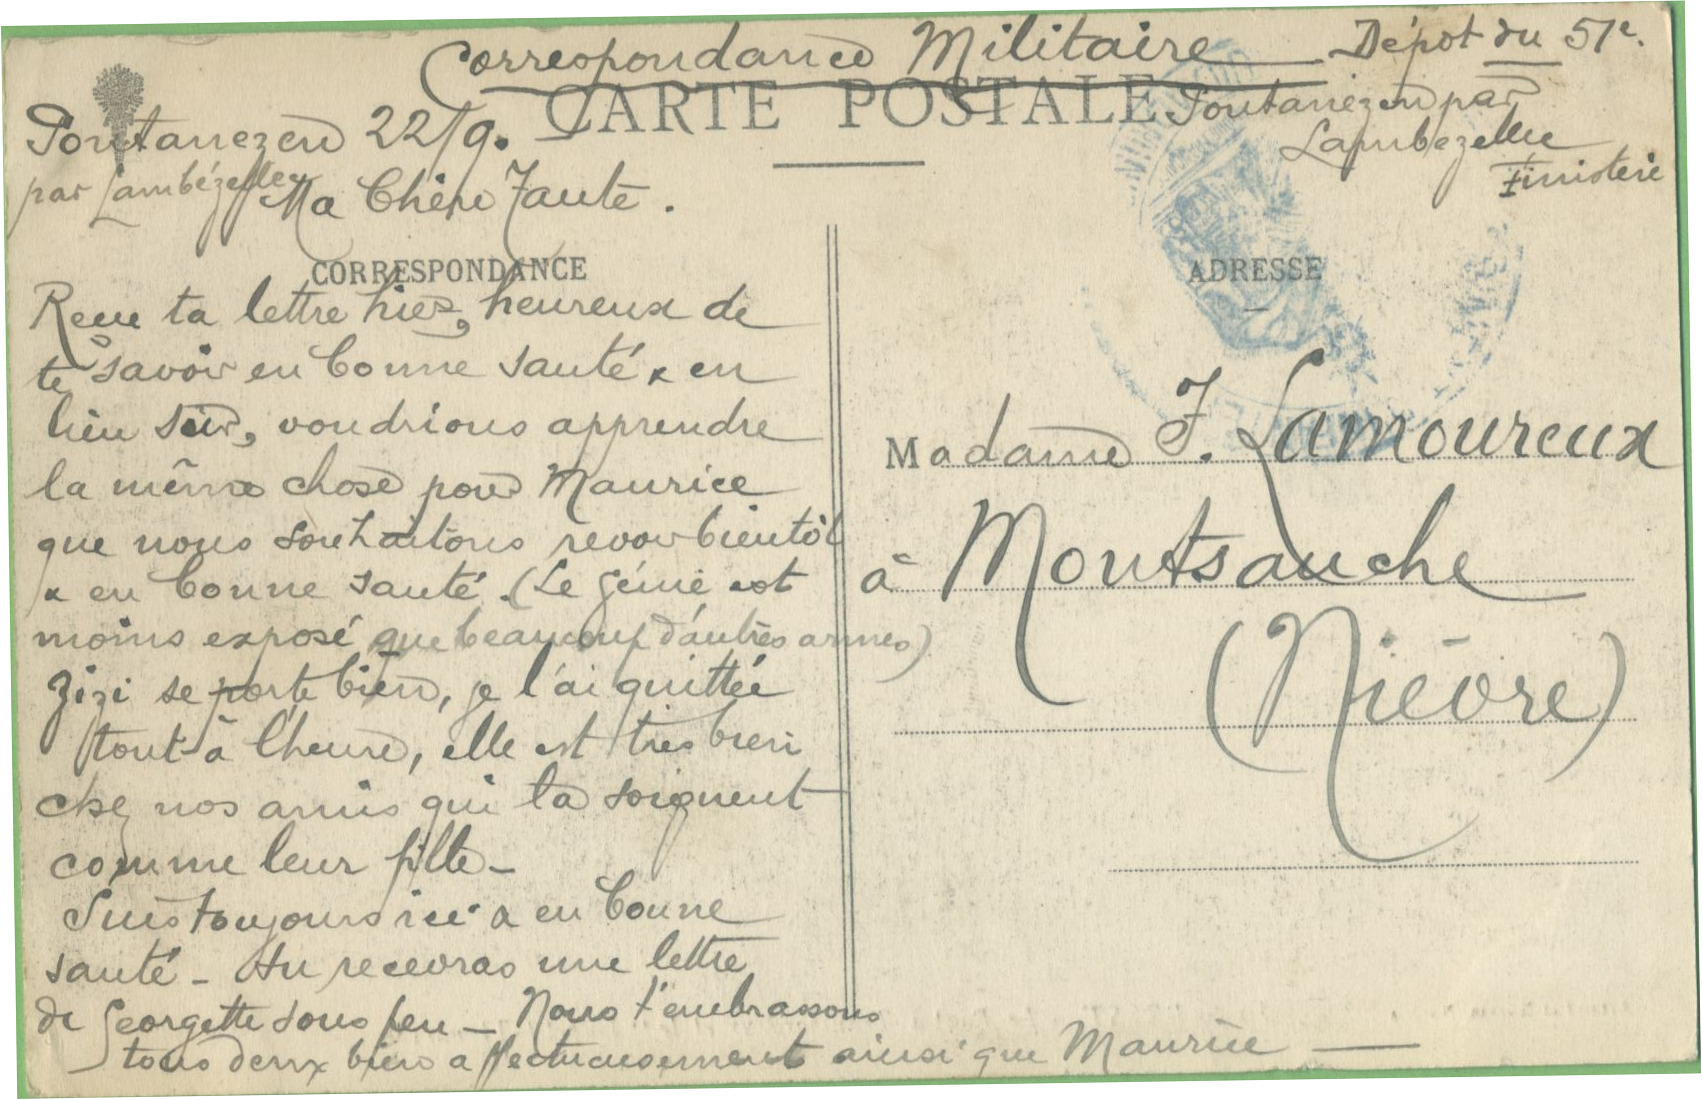 Correspondance Militaire
Dépot du 51e.
CARTE POSTALE
Pontanezen par
Lambezellec
Finistère
Pontanezen 22/9.
par Lambézellec
Ma Chère Tante.
CORRESPONDANCE
Recu ta lettre hier, heureux de
te savoir en bonne santé & en
lieu sûr, voudrions apprendre
la même chose pour Maurice
que nous souhaitons revoir bientôt
& en bonne santé. (Le génie est
moins exposé que beaucoup d'autres armes)
Zizi se porte bien, je l'ai quittée
tout à l'heure, elle est très bien
chez nos amis qui la soignent
comme leur fille -
Suis toujours ici & en bonne
santé - tu recevras une lettre
de Georgette sous peu - Nous t'embrassons
tous deux bien affectueusement ainsi que Maurice
ADRESSE
Madame J. Lamoureux
à Montsauche
(Nièvre)